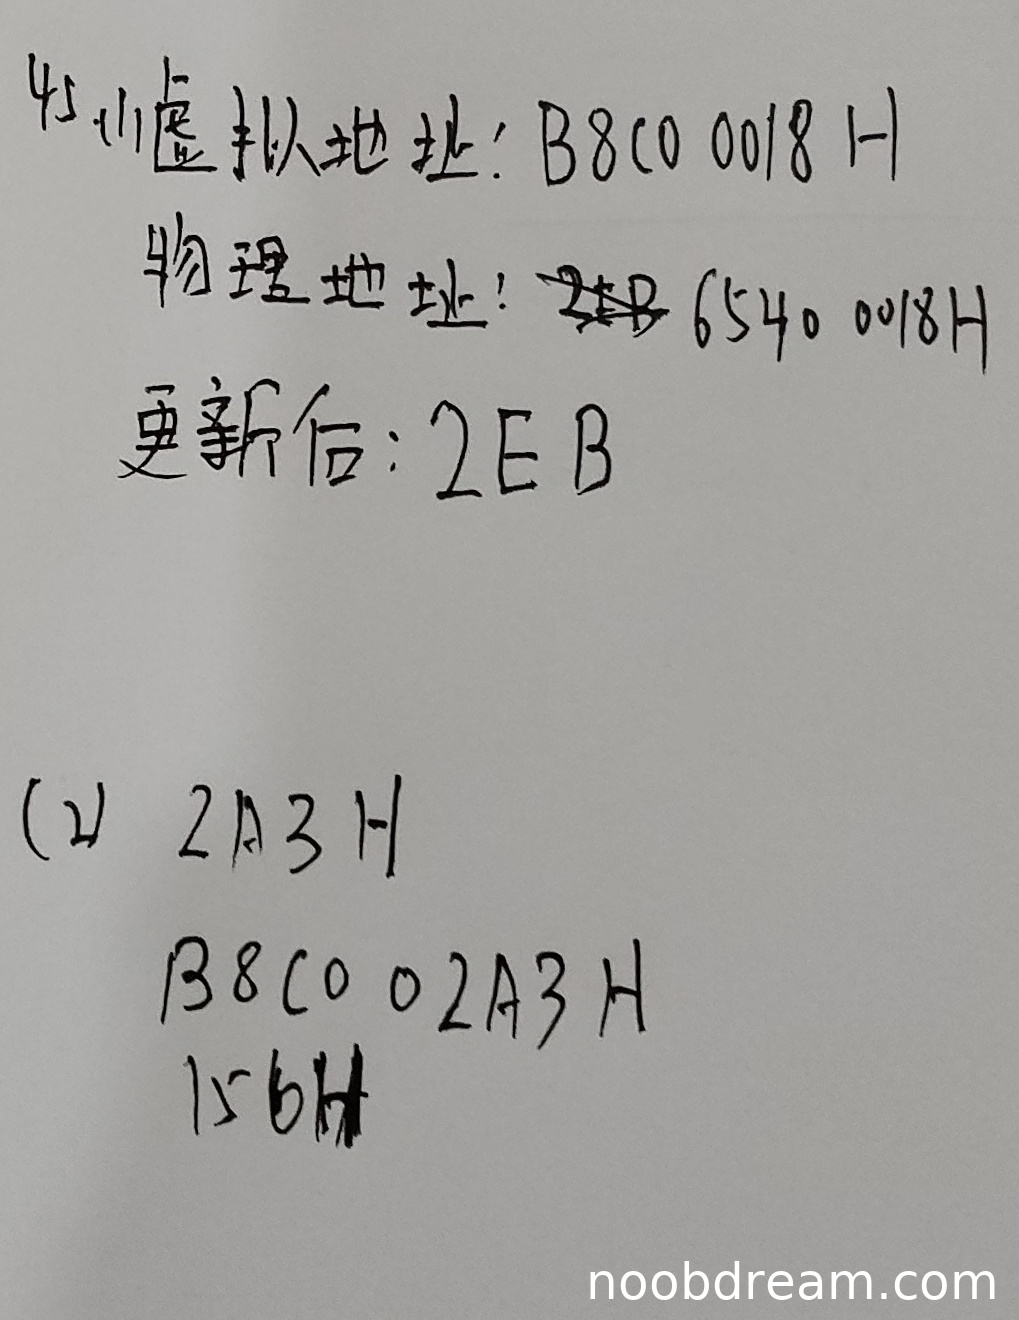 45.(1)虚拟地址: B8C0 0018 H
物理地址: 6540 0018H
更新后: 2EB
(2) 2A3H
B8C0 02A3H
156H
noobdream.com